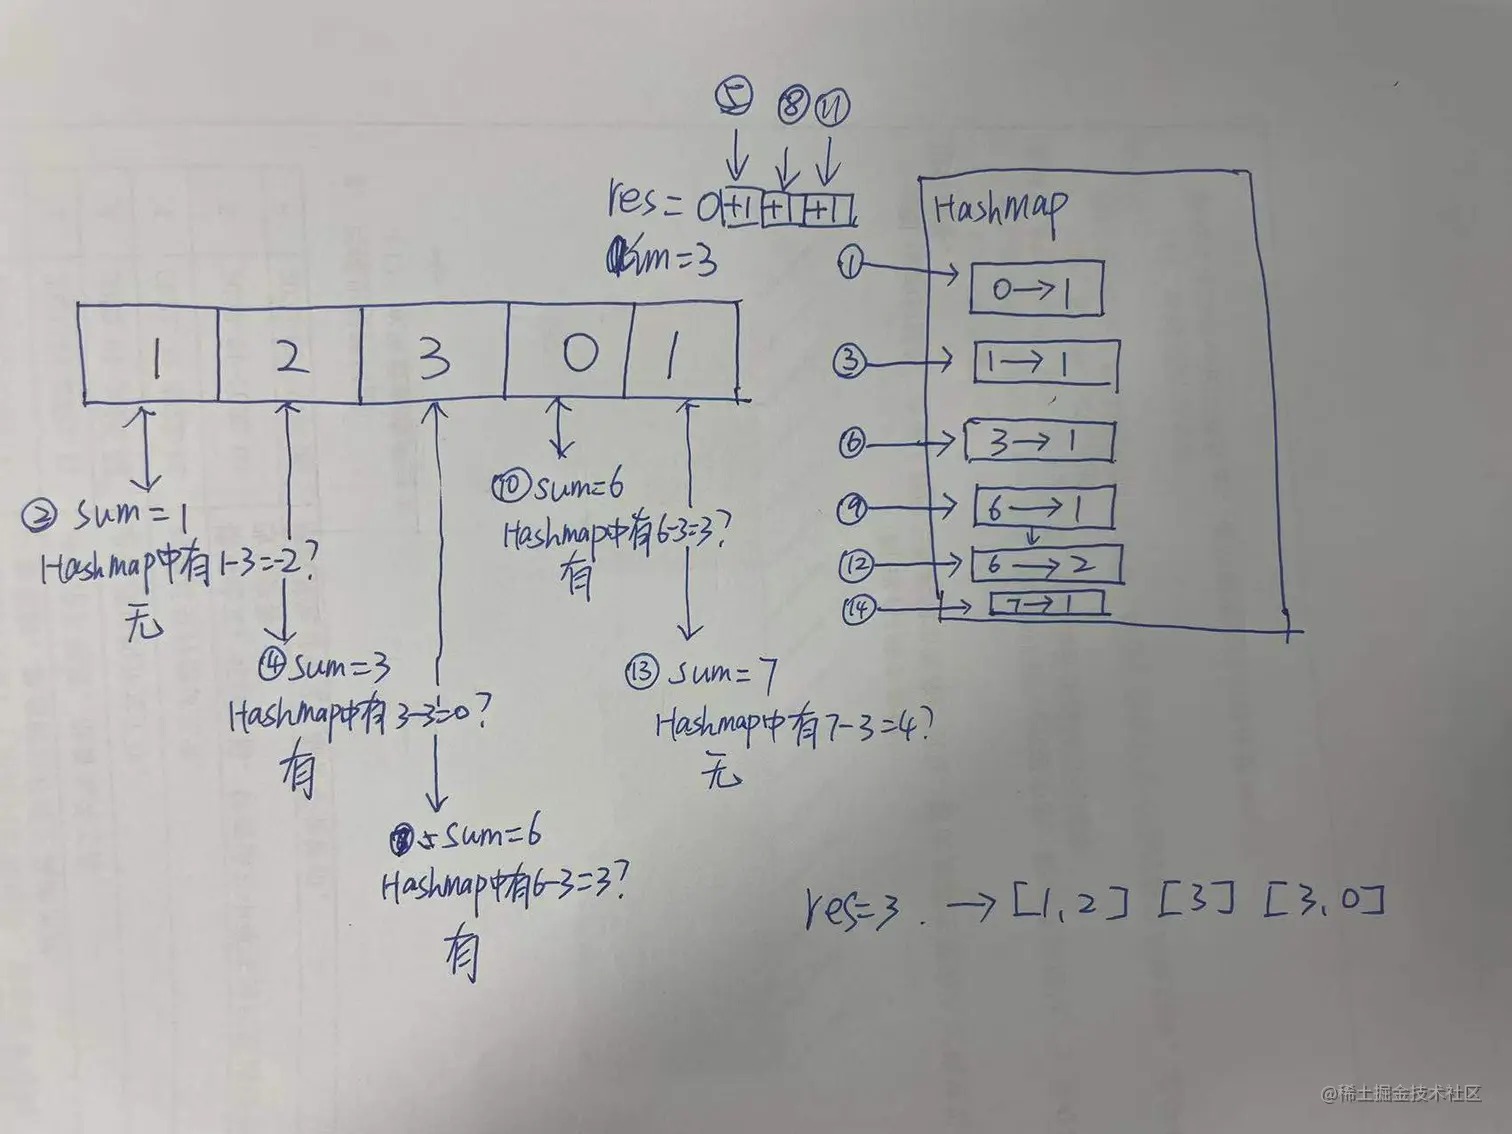 ⑤ ⑧ ⑪
res= 0 +1 +1 +1
=3
Hashmap
① 0→1
③ 1→1
⑥ 3→1
⑨ 6→1
⑫ 6→2
⑭ 7→1
1 2 3 0 1
② sum=1
Hashmap中有1-3=-2?
无
④ sum=3
Hashmap中有3-3=0?
有
sum=6
Hashmap中有6-3=3?
有
⑩ sum=6
Hashmap中有6-3=3?
有
⑬ sum=7
Hashmap中有7-3=4?
无
res=3. → [1,2] [3] [3,0]
@稀土掘金技术社区